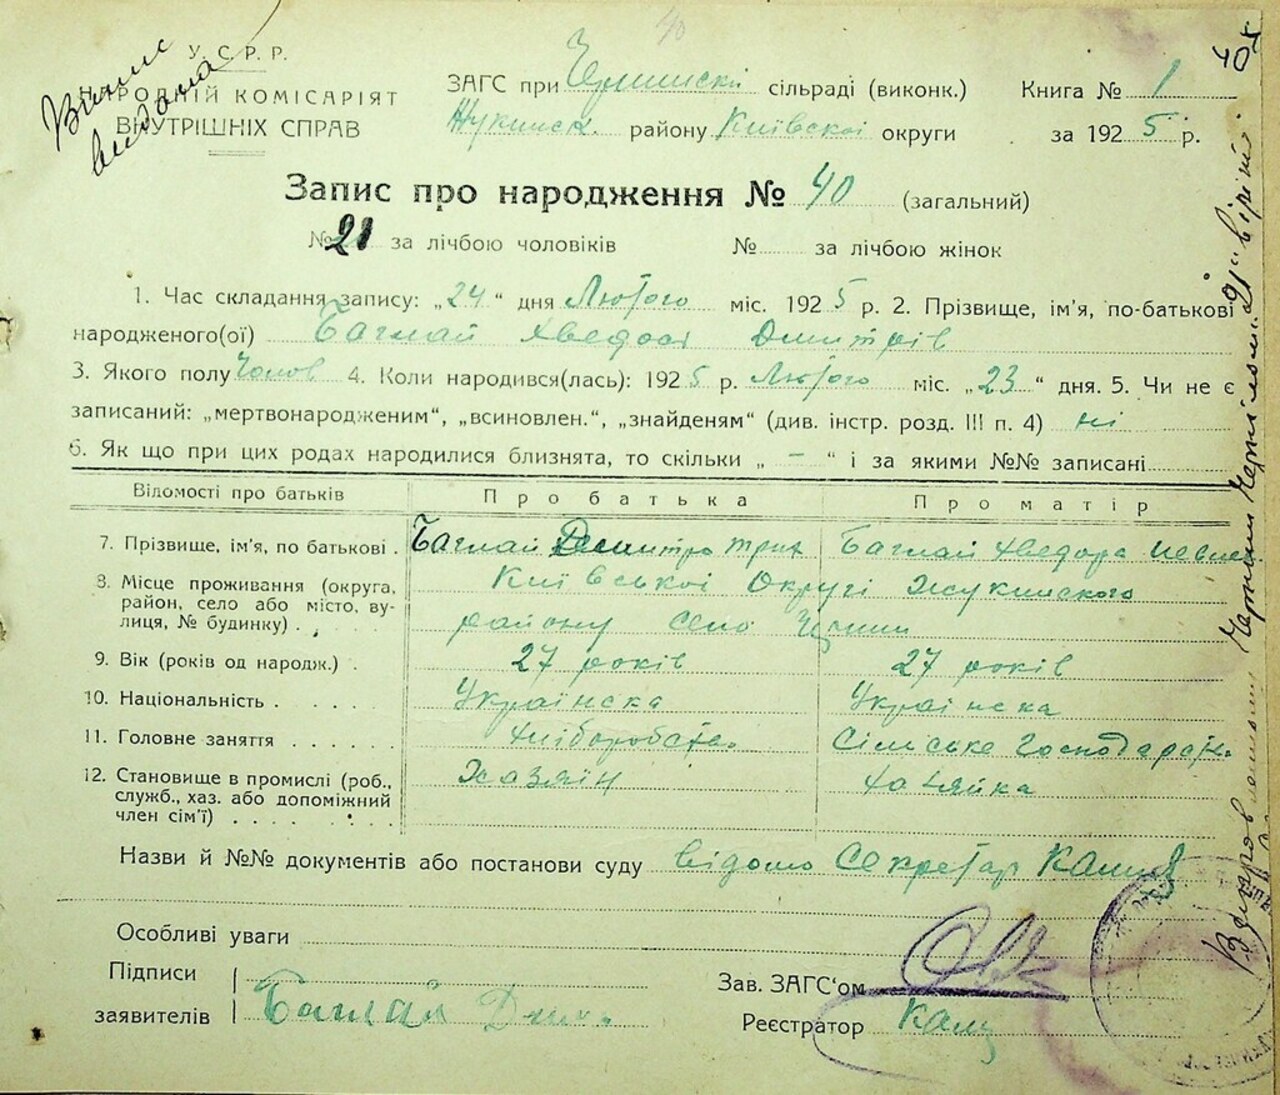 40
Випис
видана
У. С. Р. Р.
НАРОДНІЙ КОМІСАРІЯТ
ВНУТРІШНІХ СПРАВ
ЗАГС при сільраді (виконк.) Книга № 1
Жукинск. району Київскоі округи за 1925 р.
Запис про народження № 40 (загальний)
№ 21 за лічбою чоловіків № за лічбою жінок
1. Час складання запису: „24“ дня Лютого міс. 1925 р. 2. Прізвище, ім'я, по-батькові
народженого(ої) Баглай Хведося Дмитрів
3. Якого полу Чолов 4. Коли народився(лась): 1925 р. Лютого міс. „23“ дня. 5. Чи не є
записаний: „мертвонародженим“, „всиновлен.“, „знайденям“ (див. інстр. розд. III п. 4) ні
6. Як що при цих родах народилися близнята, то скільки „ – “ і за якими №№ записані
Відомості про батьків Про батька Про матір
7. Прізвище, ім'я, по батькові . Баглай Баглай Хведора
8. Місце проживання (округа, район, село або місто, вулиця, № будинку) . Київськоі Округі Жукинского
району село
9. Вік (років од народж.) . 27 років 27 років
10. Національність . . . . . Украінска Украінска
11. Головне заняття . . . . . . Хліборобств. Сільське Господарст.
12. Становище в промислі (роб., Хазяін Хазяйка
служб., хаз. або допоміжний
член сім'ї) . . . . . . . .
Назви й №№ документів або постанови суду відомо Секретар
Особливі уваги
Підписи
заявителів Баглай Дми.
Зав. ЗАГС'ом
Реєстратор